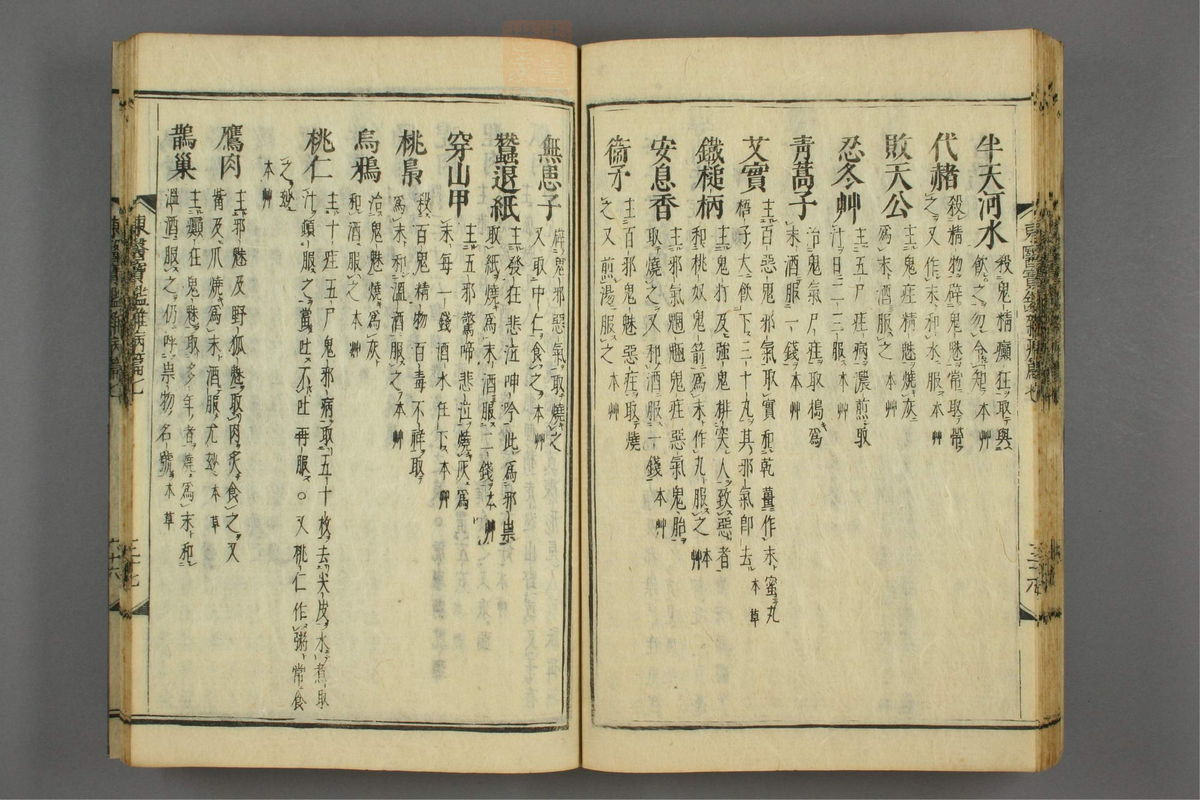 半天河水
殺鬼精癲狂取與
飮之勿令知本艸
代赭
殺精物辟鬼魅常取帶
之又作末和水服本艸
敗天公
主鬼疰精魅燒灰
爲末酒服之本艸
忍冬艸
主五尸疰病濃煎取
汁日二三服本艸
靑蒿子
治鬼氣尸疰取擣爲
末酒服一錢本艸
艾實
主百惡鬼邪氣取實和乾薑作末蜜丸
梧子大飮下三十丸其邪氣卽去本草
鐵槌柄
主鬼打及强鬼排突人致惡者
和桃奴鬼箭爲末作丸服之本艸
安息香
主邪氣魍魎鬼疰惡氣鬼胎
取燒之又和酒服一錢本艸
衞矛
主百邪鬼魅惡疰取燒
之又煎湯服之本艸
無患子
辟鬼邪惡氣取燒之
又取中仁食之本艸
蠶退紙
主發狂悲泣呻吟此爲邪祟
取紙燒爲末酒服二錢本艸
穿山甲
主五邪驚啼悲泣燒灰爲
末每一錢酒水任下本艸
桃梟
殺百鬼精物百毒不祥取
爲末和溫酒服之本艸
烏鴉
治鬼魅燒爲灰
和酒服之本艸
桃仁
主十疰五尸鬼邪病取五十枚去尖皮水煮取
汁頓服之當吐不吐再服○又桃仁作粥常食
之妙
本艸
鷹肉
主邪魅及野狐魅取肉炙食之又
觜及爪燒爲末酒服尤妙本草
鵲巢
主癲狂鬼魅取多年者燒爲末和
溫酒服之仍呼祟物名號本草
東醫寶鑑雜病篇七
東醫寶鑑雜病篇七